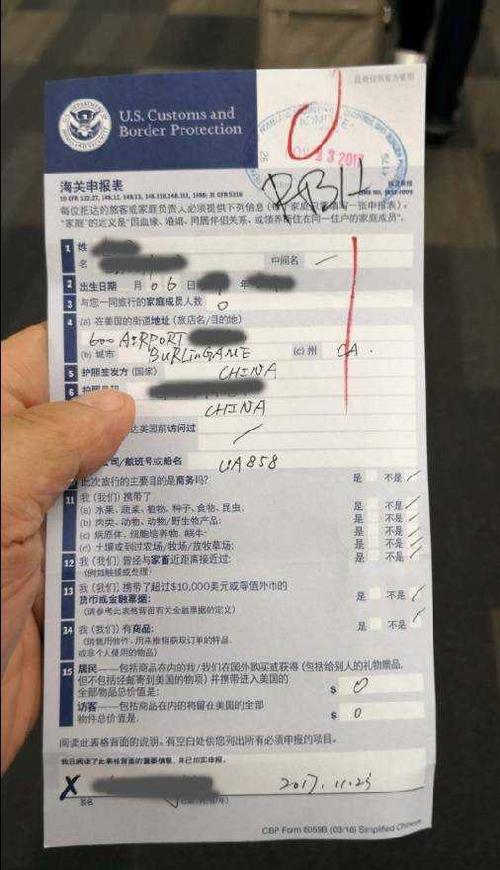 此处仅供官方使用
U.S. Customs and
Border Protection
23 2017
海关申报表
19 CFR 122.27, 148.12, 148.13, 148.110, 148.111, 1498; 31 CFR 5316
每位抵达的旅客或家庭负责人必须提供下列信息
“家庭”的定义是“因血缘、婚姻、同居伴侣关系，或领养所住在同一住户的家庭成员”。
1 姓
名 中间名
2 出生日期 月 06 日 年
3 与您一同旅行的家庭成员人数 0
4 (a) 在美国的街道地址（旅店名/目的地）
600 AIRPORT
(b) 城市 BURLINGAME (c) 州 CA.
5 护照签发方(国家) CHINA
6
CHINA
达美国前访问过
公司/航班号或船名 UA858
此次旅行的主要目的是商务吗? 是 不是
11 我（我们）携带了
(a) 水果、蔬菜、植物、种子、食物、昆虫: 是 不是
(b) 肉类、动物、动物/野生物产品: 是 不是
(c) 病原体、细胞培养物、蜗牛: 是 不是
(d) 土壤或到过农场/牧场/放牧草场: 是 不是
12 我（我们）曾经与家畜近距离接近过: 是 不是
(例如触摸或处理)
13 我（我们）携带了超过$10,000美元或等值外币的
货币或金融票据: 是 不是
(请参考此表格背面有关金融票据的定义)
14 我（我们）有商品: 是 不是
(销售用物件，用来推销获取订单的样品，
或非个人使用的物品)
15 居民——包括商品在内的我/我们在国外购买或获得（包括给别人的礼物赠品，
但不包括经邮寄到美国的物项）并携带进入美国的
全部物品总价值是: $ 0
访客——包括商品在内的将留在美国的全部
物件总价值是: $ 0
阅读此表格背面的说明。有空白处供您列出所有必须申报的项目。
我已阅读了此表格背面的重要信息，并已如实申报。
X 2017.11.23
签名
CBP Form 6059B (03/16) Simplified Chinese